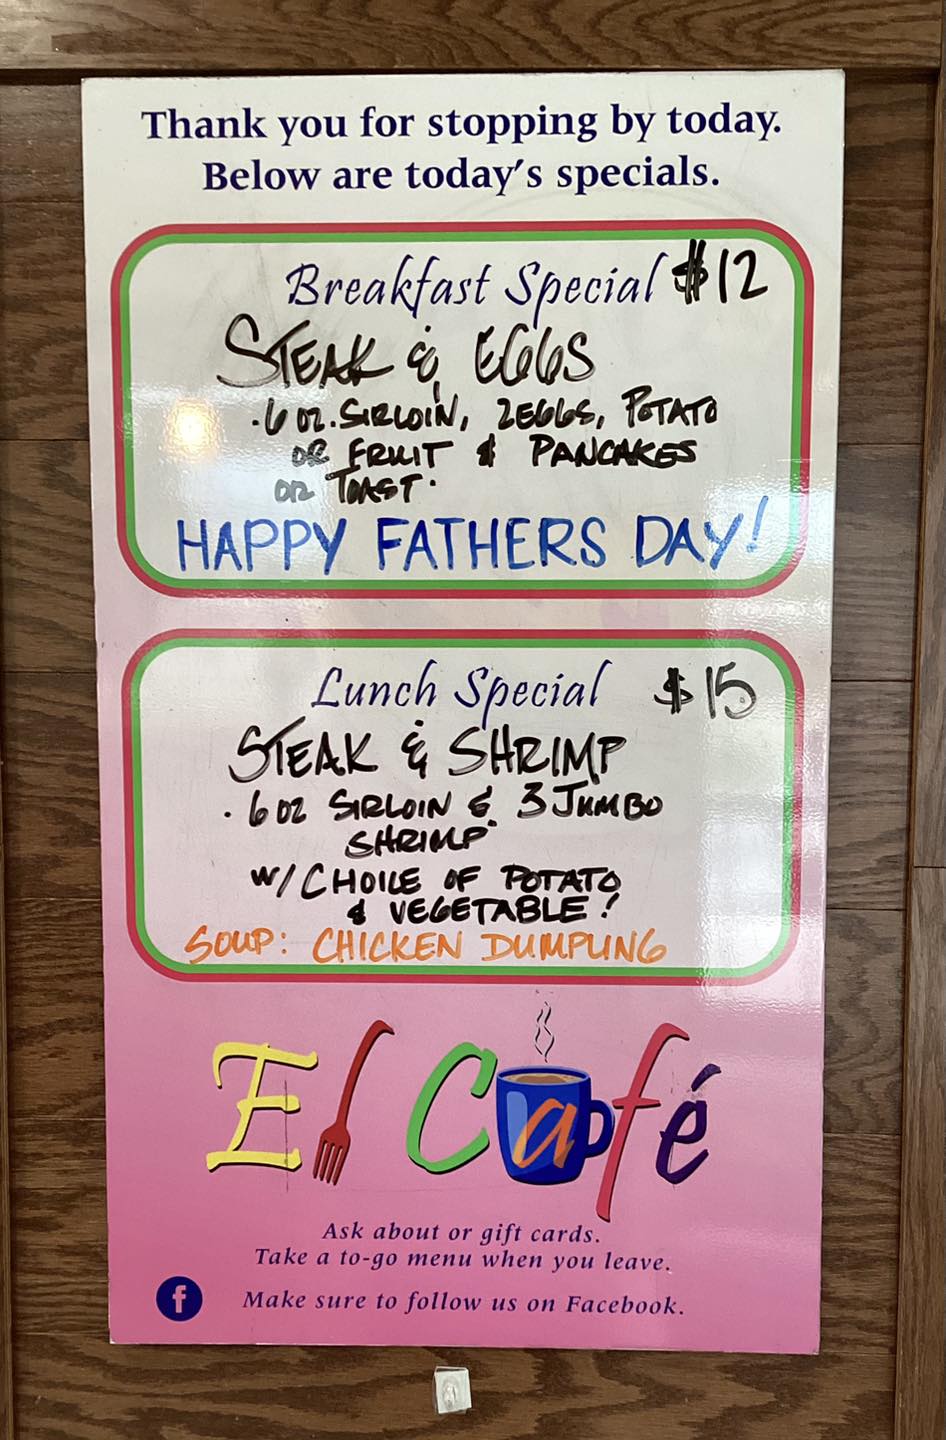 Thank you for stopping by today.
Below are today's specials.
Breakfast Special $12
STEAK & EGGS
.6 oz. SIRLOIN, 2EGGS, POTATO
OR FRUIT & PANCAKES
OR TOAST.
HAPPY FATHERS DAY!
Lunch Special $15
STEAK & SHRIMP
. 6 oz SIRLOIN & 3 JUMBO
SHRIMP
W/ CHOICE OF POTATO
& VEGETABLE!
SOUP: CHICKEN DUMPLING
El Café
Ask about or gift cards.
Take a to-go menu when you leave.
f Make sure to follow us on Facebook.